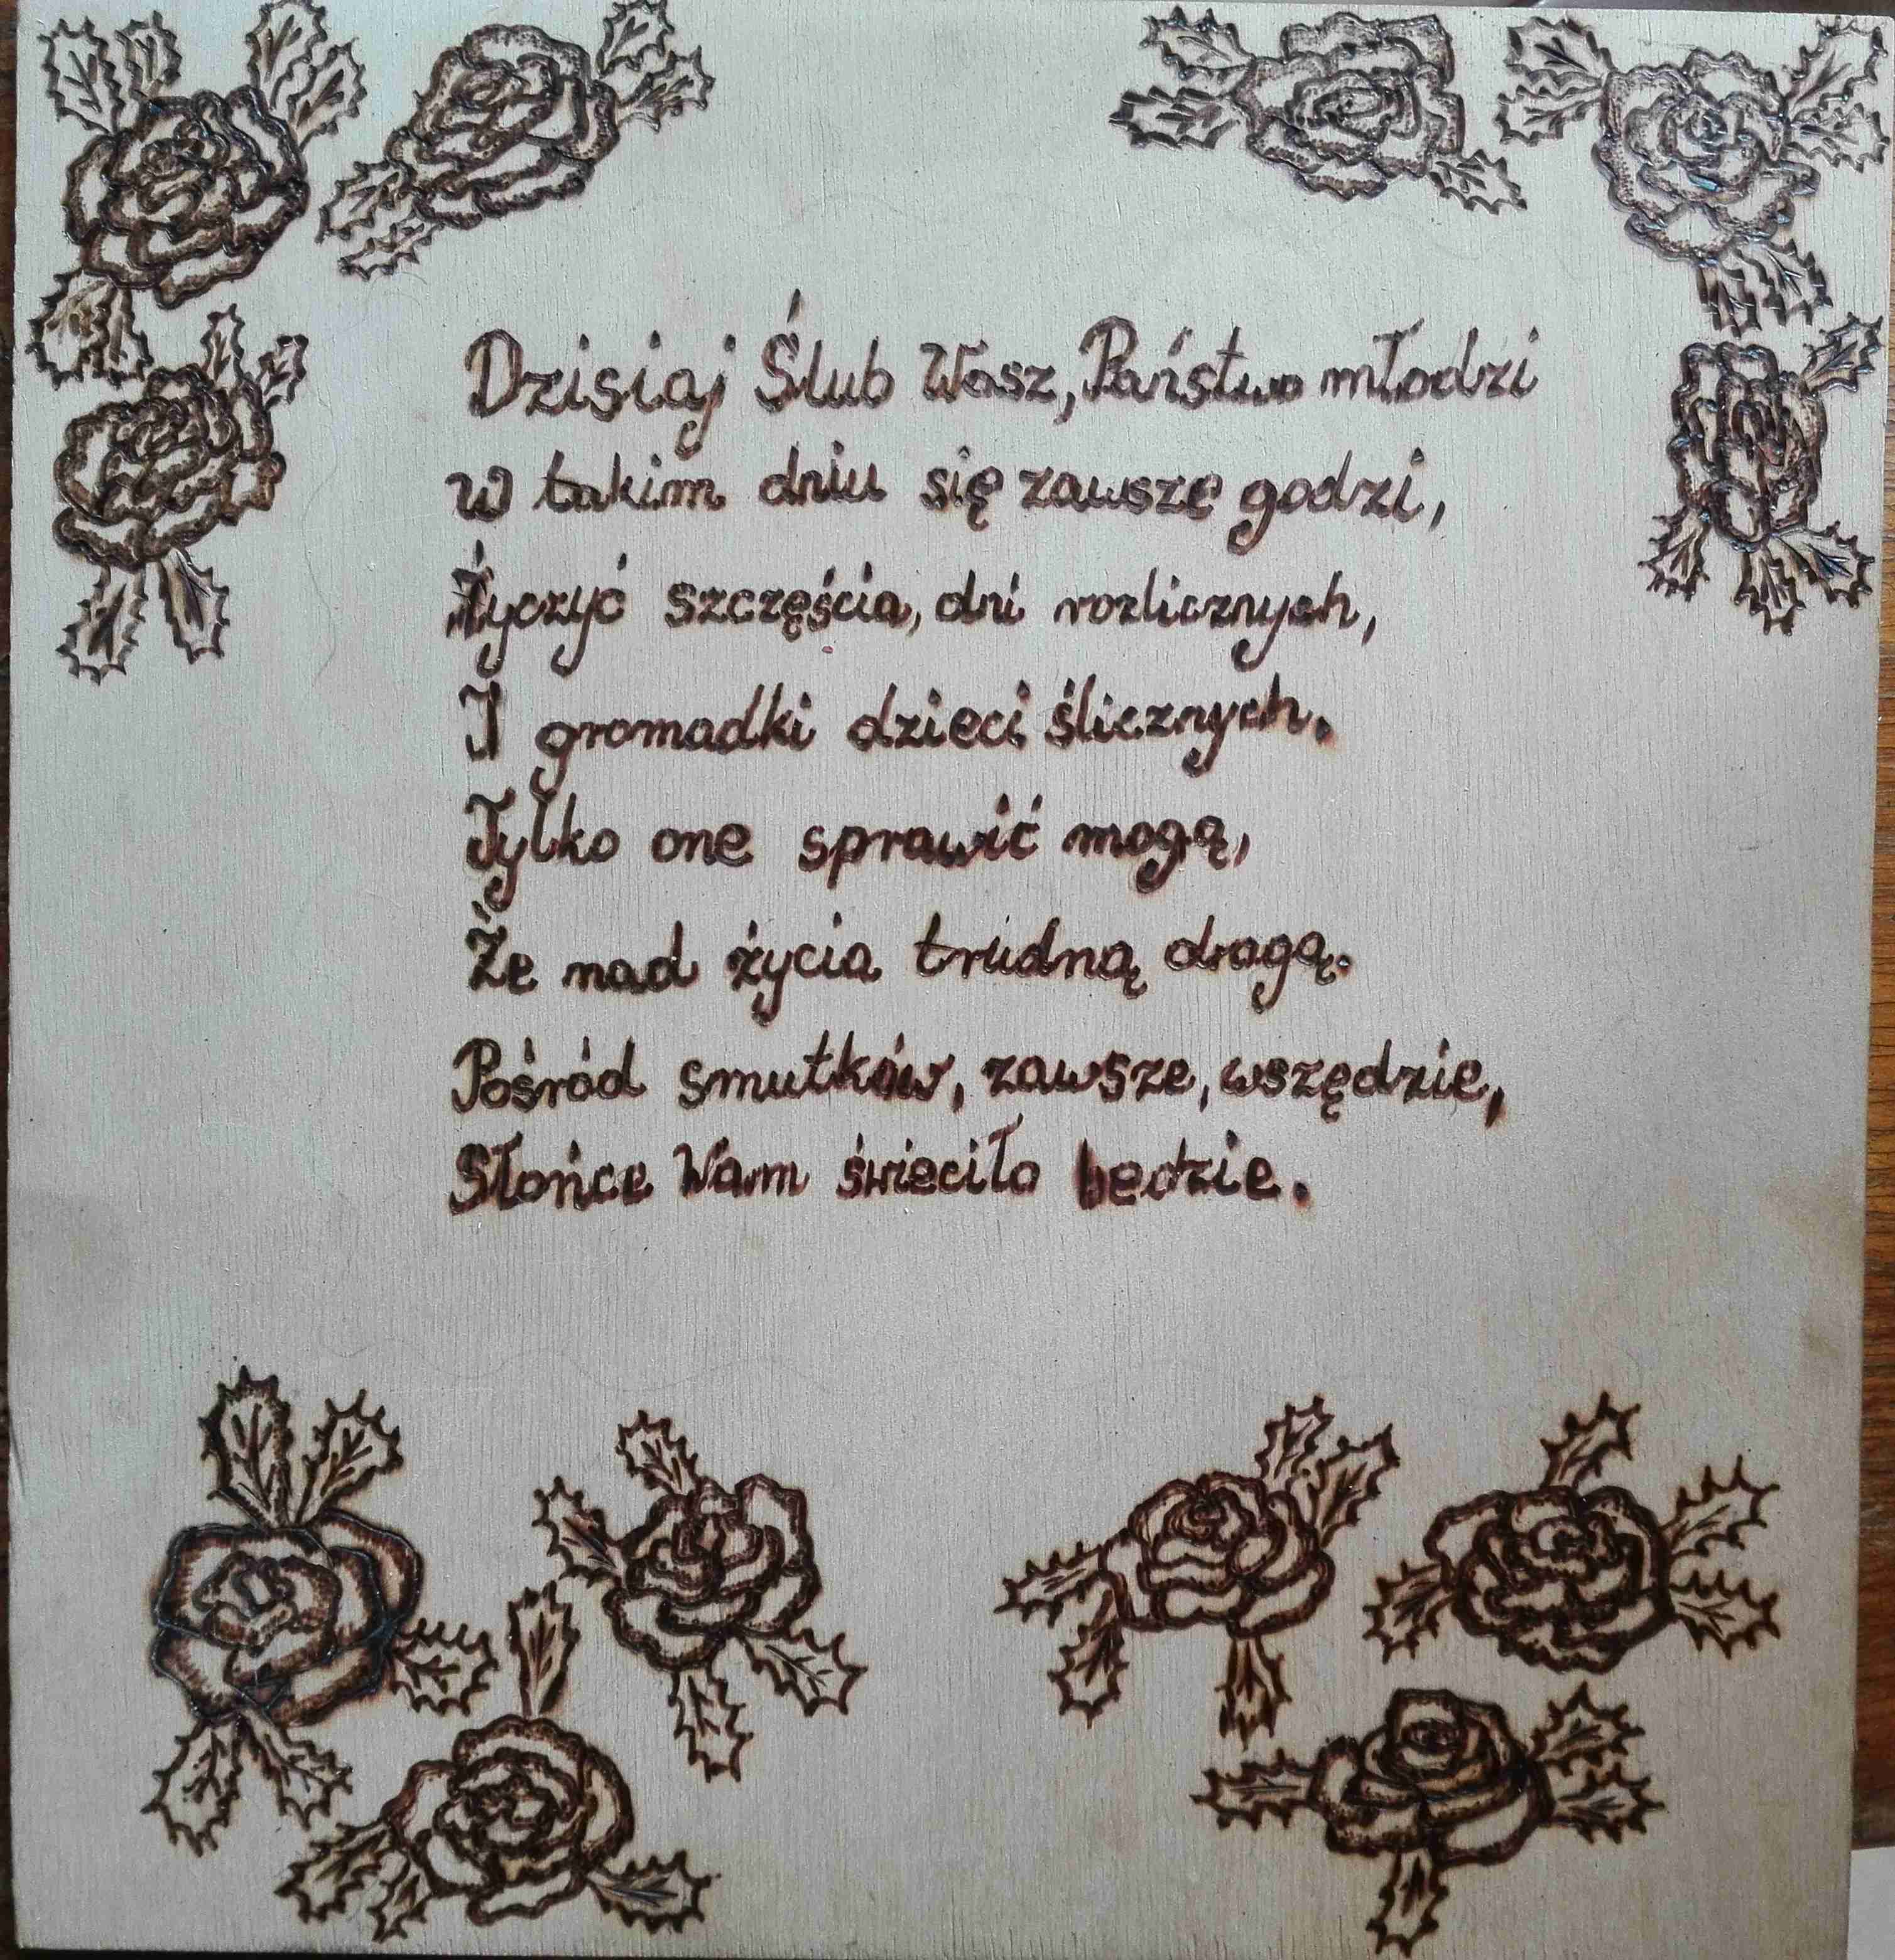 Dzisiaj Ślub Wasz, Państwo młodzi
w takim dniu się zawsze godzi,
Życzyć szczęścia, dni rozlicznych,
I gromadki dzieci ślicznych.
Tylko one sprawić mogą,
Że nad życia trudną drogą.
Pośród smutków, zawsze, wszędzie,
Słońce Wam świeciło będzie.